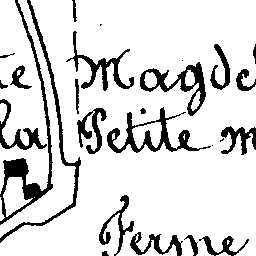 te Magde
la Petite m
Ferme